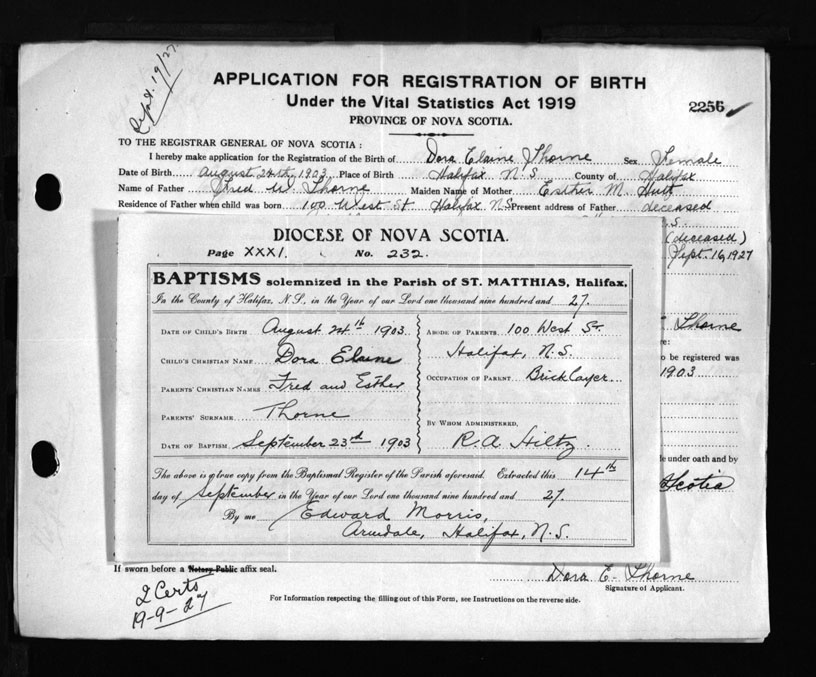 Sept. 19/27.
APPLICATION FOR REGISTRATION OF BIRTH
Under the Vital Statistics Act 1919
2256
PROVINCE OF NOVA SCOTIA.
TO THE REGISTRAR GENERAL OF NOVA SCOTIA :
I hereby make application for the Registration of the Birth of Dora Elaine Thorne Sex Female
Date of Birth August 24th, 1903 Place of Birth Halifax N.S County of Halifax
Name of Father Fred W. Thorne Maiden Name of Mother Esther M.
Residence of Father when child was born 100 West St Halifax N.S Present address of Father deceased
.S.
(deceased)
Sept. 16, 1927
DIOCESE OF NOVA SCOTIA.
Page XXXI. No. 232.
BAPTISMS solemnized in the Parish of ST. MATTHIAS, Halifax,
In the County of Halifax, N.S., in the Year of our Lord one thousand nine hundred and 27.
DATE OF CHILD'S BIRTH August 24th 1903
CHILD'S CHRISTIAN NAME Dora Elaine
PARENTS' CHRISTIAN NAMES Fred and Esther
PARENTS' SURNAME Thorne
DATE OF BAPTISM September 23rd 1903
ABODE OF PARENTS 100 West St.
Halifax, N.S.
OCCUPATION OF PARENT Bricklayer
BY WHOM ADMINISTERED,
R.A. Hiltz.
The above is a true copy from the Baptismal Register of the Parish aforesaid. Extracted this 14th
day of September in the Year of our Lord one thousand nine hundred and 27.
By me Edward Morris,
Armdale, Halifax, N.S.
Thorne
re:
to be registered was
1903
le under oath and by
Scotia
If sworn before a Notary Public affix seal.
Dora E. Thorne
Signature of Applicant.
2 Certs
19-9-27
For Information respecting the filling out of this Form, see Instructions on the reverse side.